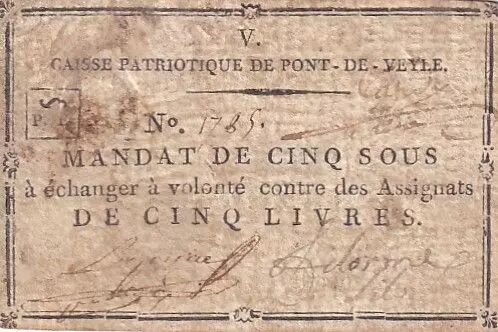 V.
CAISSE PATRIOTIQUE DE PONT-DE-VEYLE.
5
P.
No. 1785.
MANDAT DE CINQ SOUS
à échanger à volonté contre des Assignats
DE CINQ LIVRES.
Delorme